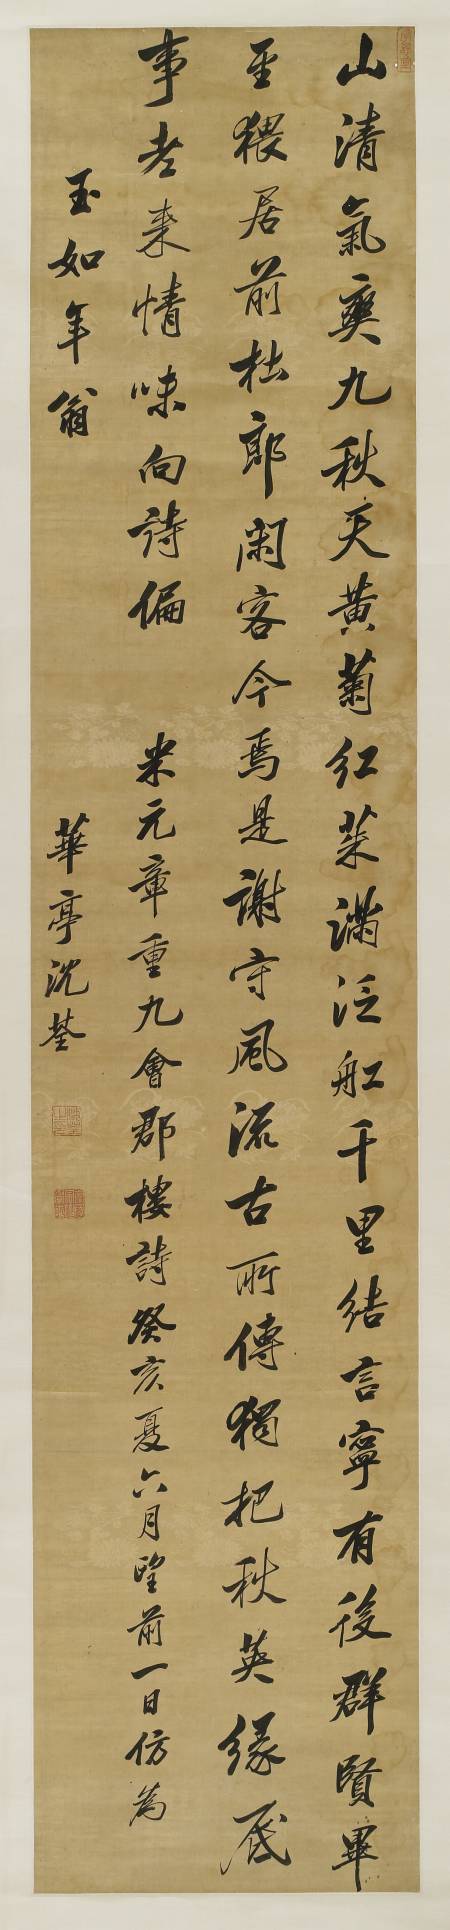 山清氣爽九秋天黃菊紅茱滿泛舡千里結言寧有後群賢畢
至猥居前杜郎閑客今焉是謝守風流古所傳獨把秋英緣底
事老來情味向詩偏
米元章重九會郡樓詩癸亥夏六月望前一日仿為
玉如年翁
華亭沈荃